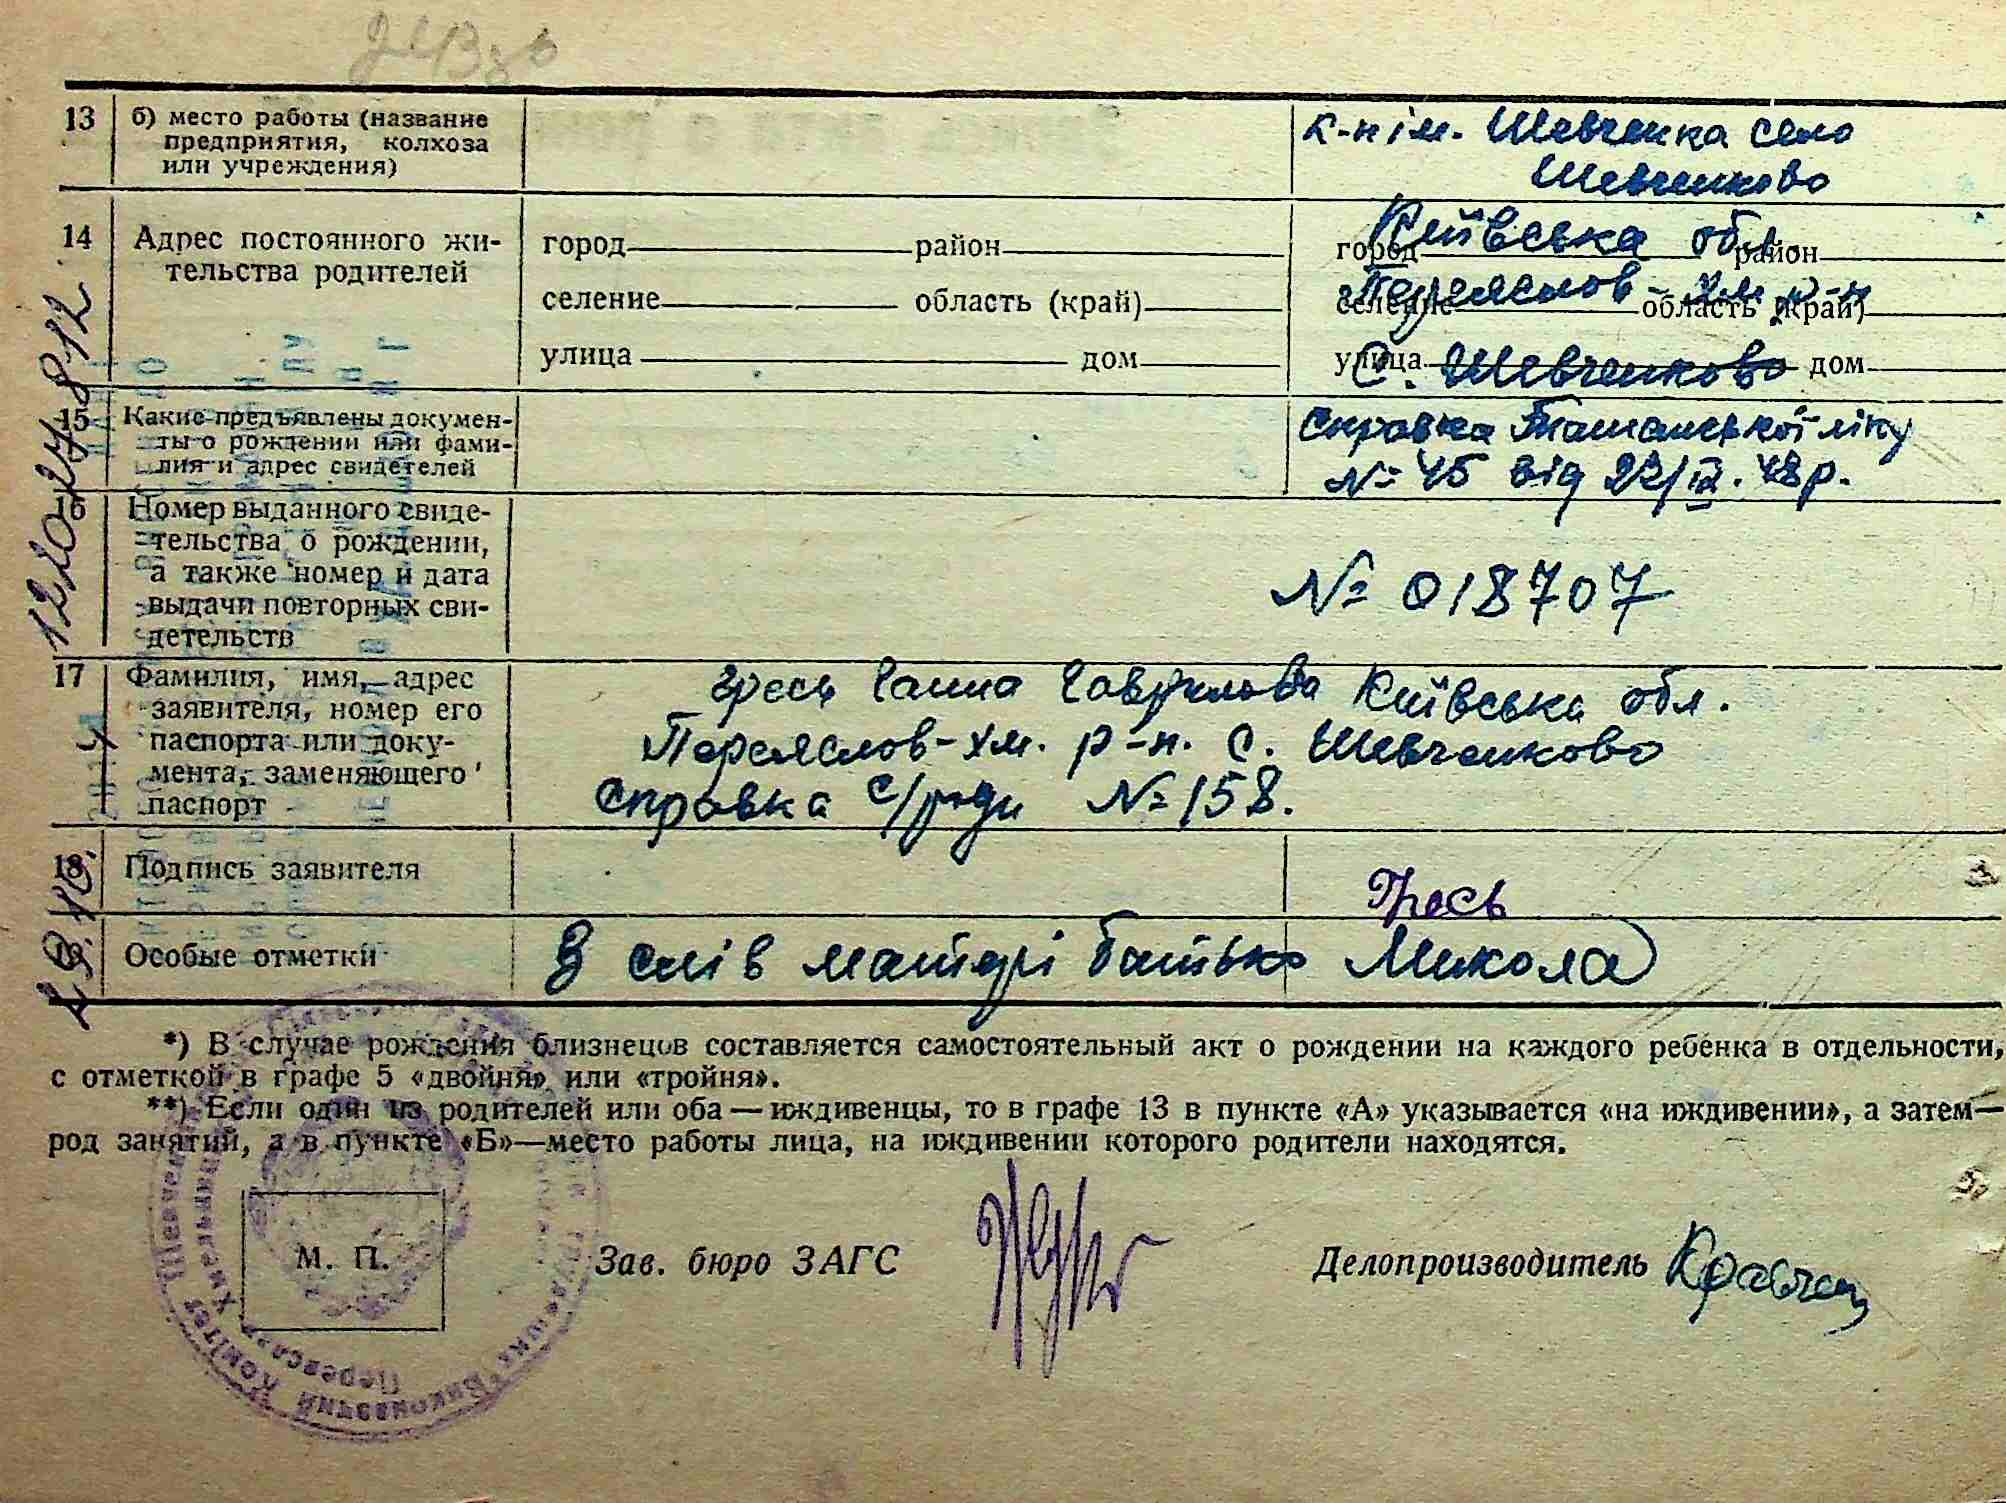 13 б) место работы (название
предприятия, колхоза
или учреждения)
к-н ім. Шевченка село
Шевченково
14 Адрес постоянного жи-
тельства родителей
город район
селение область (край)
улица дом
город район
селение область (край)
улица дом
Київська обл.
Переяслов-хм. р-н
С. Шевченково
15 Какие предъявлены докумен-
ты о рождении или фами-
лия и адрес свидетелей
Справка Ташанської ліку
№ 45 від
16 Номер выданного свиде-
тельства о рождении,
а также номер и дата
выдачи повторных сви-
детельств
№ 018707
17 Фамилия, имя, адрес
заявителя, номер его
паспорта или доку-
мента, заменяющего
паспорт
Гресь Ганна Гаврилова Київська обл.
Переяслов-хм. р-н. С. Шевченково
Справка с/ради № 158.
18 Подпись заявителя
Гресь
19 Особые отметки
З слів матері батько Микола
*) В случае рождения близнецов составляется самостоятельный акт о рождении на каждого ребёнка в отдельности,
с отметкой в графе 5 «двойня» или «тройня».
**) Если один из родителей или оба — иждивенцы, то в графе 13 в пункте «А» указывается «на иждивении», а затем—
род занятий, а в пункте «Б»—место работы лица, на иждивении которого родители находятся.
М. П.
Зав. бюро ЗАГС
Делопроизводитель Кравчен
Виконавчий Комітет
Переяслав